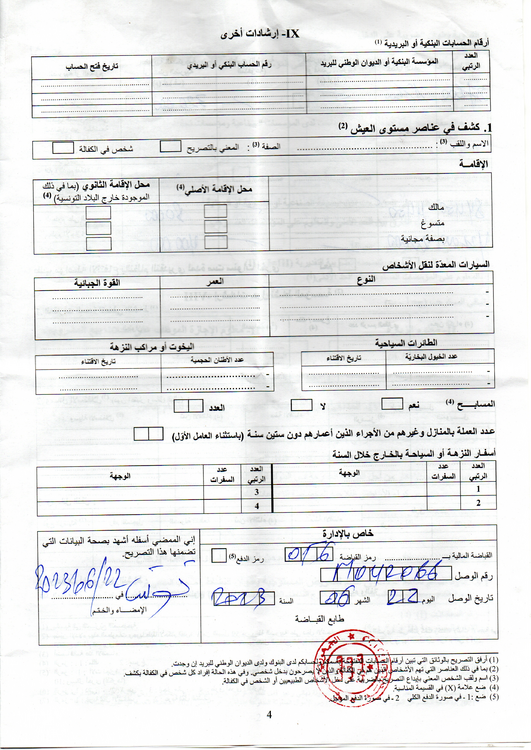 IX- إرشادات أخرى
أرقام الحسابات البنكية أو البريدية (1)
العدد الرتبي
المؤسسة البنكية أو الديوان الوطني للبريد
رقم الحساب البنكي أو البريدي
تاريخ فتح الحساب
1. كشف في عناصر مستوى العيش (2)
الاسم واللقب (3) : الصفة (3) : المعني بالتصريح شخص في الكفالة
الإقامة
محل الإقامة الأصلي (4)
محل الإقامة الثانوي (بما في ذلك الموجودة خارج البلاد التونسية) (4)
مالك
متسوغ
بصفة مجانية
السيارات المعدّة لنقل الأشخاص
النوع العمر القوة الجبائية
-
-
الطائرات السياحية
اليخوت أو مراكب النزهة
عدد الخيول البخارية تاريخ الاقتناء
عدد الأطنان الحجمية تاريخ الاقتناء
-
-
المسابح (4) نعم لا العدد
عدد العملة بالمنازل وغيرهم من الأجراء الذين أعمارهم دون ستين سنة (باستثناء العامل الأوّل)
أسفار النزهة أو السياحة بالخارج خلال السنة
العدد الرتبي عدد السفرات الوجهة
العدد الرتبي عدد السفرات الوجهة
1 3
2 4
خاص بالإدارة
القباضة المالية رمز القباضة رمز الدفع (5)
رقم الوصل
تاريخ الوصل اليوم 22 الشهر 06 السنة 2023
طابع القباضة
إني الممضي أسفله أشهد بصحة البيانات التي
تضمنها هذا التصريح.
في 2023/06/22
الإمضاء والختم
(1) أرفق التصريح بالوثائق التي تبين أرقام الحسابات لحسابكم لدى البنوك ولدى الديوان الوطني للبريد إن وجدت.
(2) بما في ذلك العناصر التي تهم الأشخاص يصرحون بدخل شخصي. وفي هذه الحالة إفراد كل شخص في الكفالة بكشف.
(3) اسم ولقب الشخص المعني بإيداع التصريح الأشخاص الطبيعيين أو الشخص في الكفالة.
(4) ضع علامة (X) في القسيمة المناسبة.
(5) ضع : 1 - في صورة الدفع الكلي 2 - في صورة الدفع
4